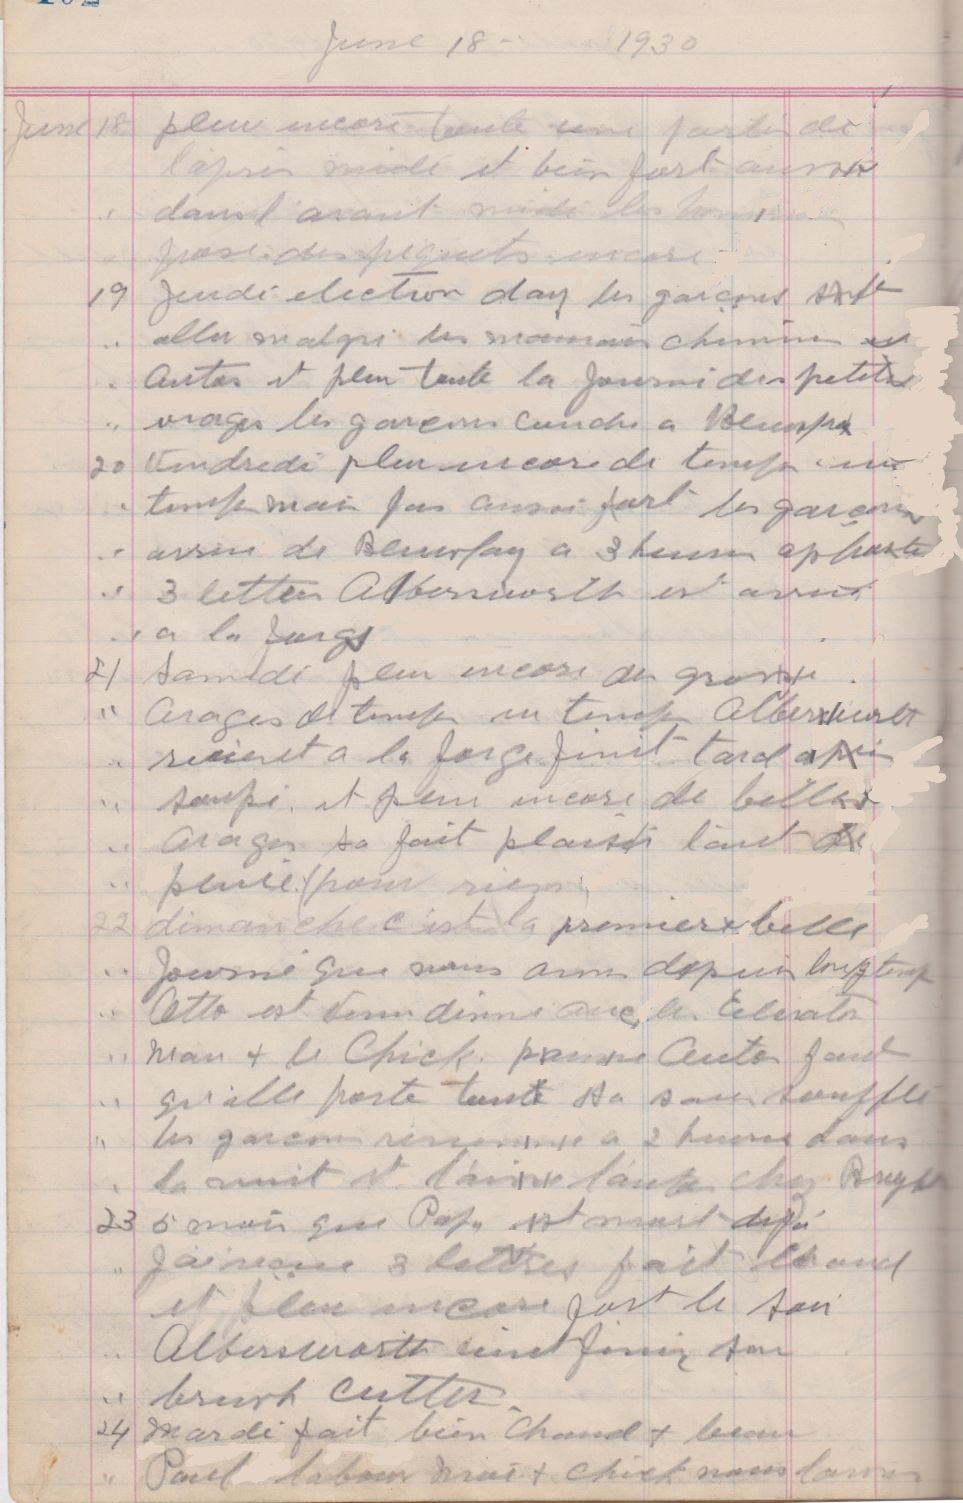 102
June 18 - 1930
June 18 pleu encore toute une partie de
l'apres midi et bien fort aussi
" dans l'avant midi les hommes
" pose des piquets encore
19 Jeudi election day les garcons sont
" aller malgre les mauvais chemins en
" Autos et pleu toute la journi des petites
" orages les garcons couche a
20 Vendredi pleu encore de temps en
" temps mais pas aussi fort les garcons
" arrive de a 3 heures apporte
" 3 letters Albersworth est arrive
" a la forge
21 Samedi pleu encore des grosse
" Arages de temps en temps Albersworth
" revient a la forge finit tard apres
" soupe. et pleu encore de belles
" Arages sa fait plaisir tant de
" pluie pour rien
22 dimanche c'est la premiere belle
" Journe que nous avons depuis longtemps
" Otto est venu dinne avec les Elevator
" man + le Chick. pauvre Auto faut
" qu'elle porte toute sa sans souffle
" les garcons reviennes a 2 heures dans
" la nuit et chez
23 5 mois que Papa est mort deja
" J'ai recue 3 lettres fait chaud
et pleu encore fort le soir
" Albersworth vient finir son
" brush cutter.
24 Mardi fait bien Chaud + beau
" Paul labour + chick nous lavons